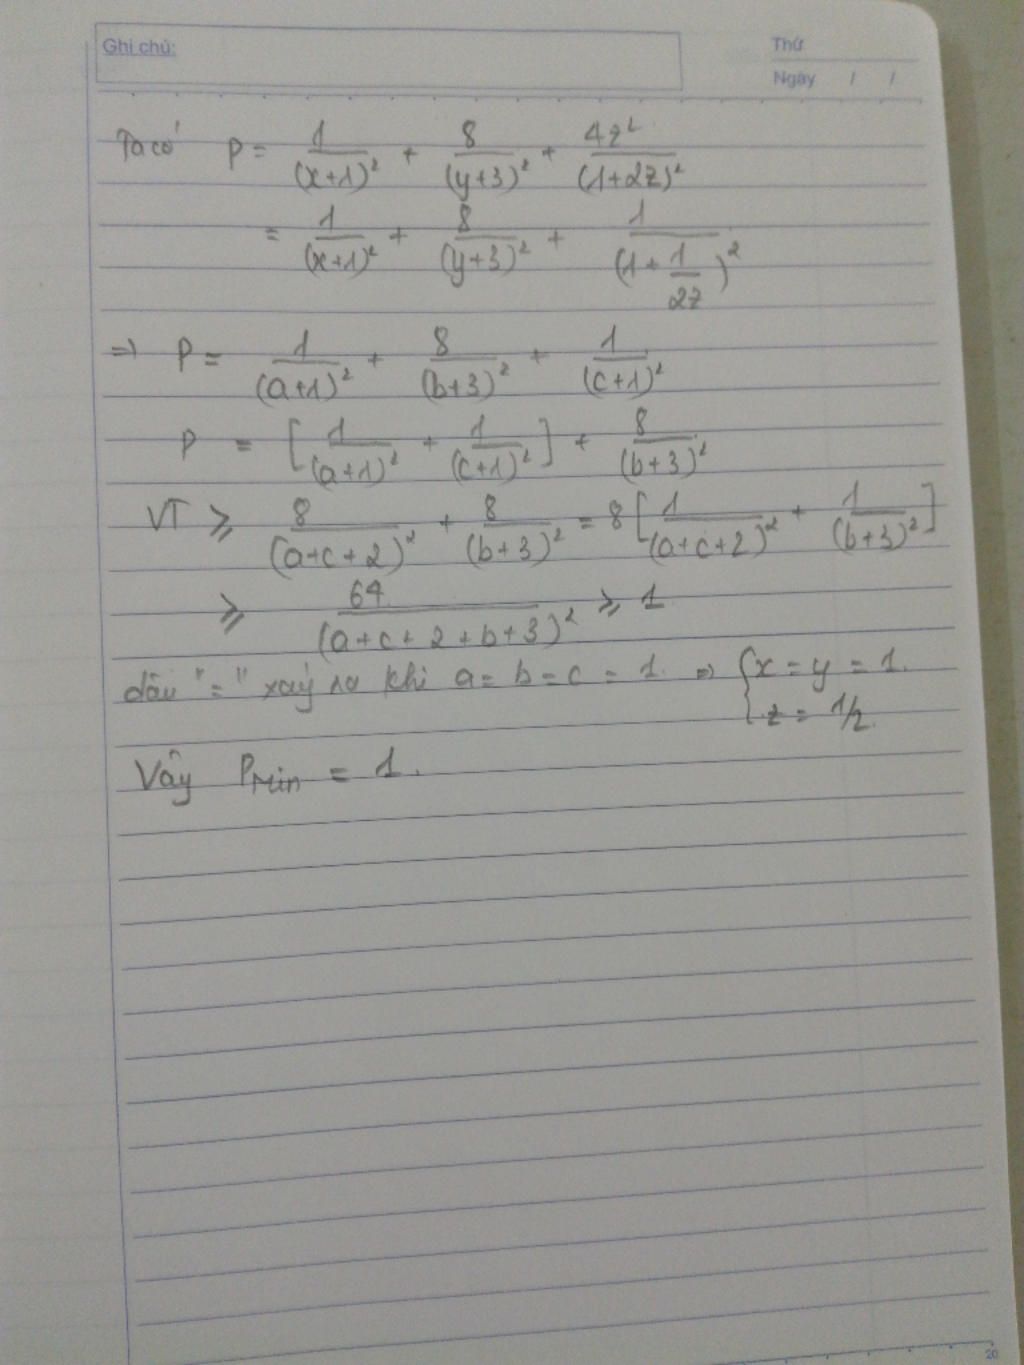 Ghi chú:
Thứ
Ngày / /
Ta có P = 1/(x+1)² + 8/(y+3)² + 4z²/(1+2z)²
= 1/(x+1)² + 8/(y+3)² + 1/(1 + 1/2z)²
⇒ P = 1/(a+1)² + 8/(b+3)² + 1/(c+1)²
P = [1/(a+1)² + 1/(c+1)²] + 8/(b+3)²
VT ≥ 8/(a+c+2)² + 8/(b+3)² = 8[1/(a+c+2)² + 1/(b+3)²]
≥ 64/(a+c+2+b+3)² ≥ 1
dấu "=" xảy ra khi a = b = c = 1. ⇒ { x = y = 1.
z = 1/2.
Vậy PMin = 1.
20